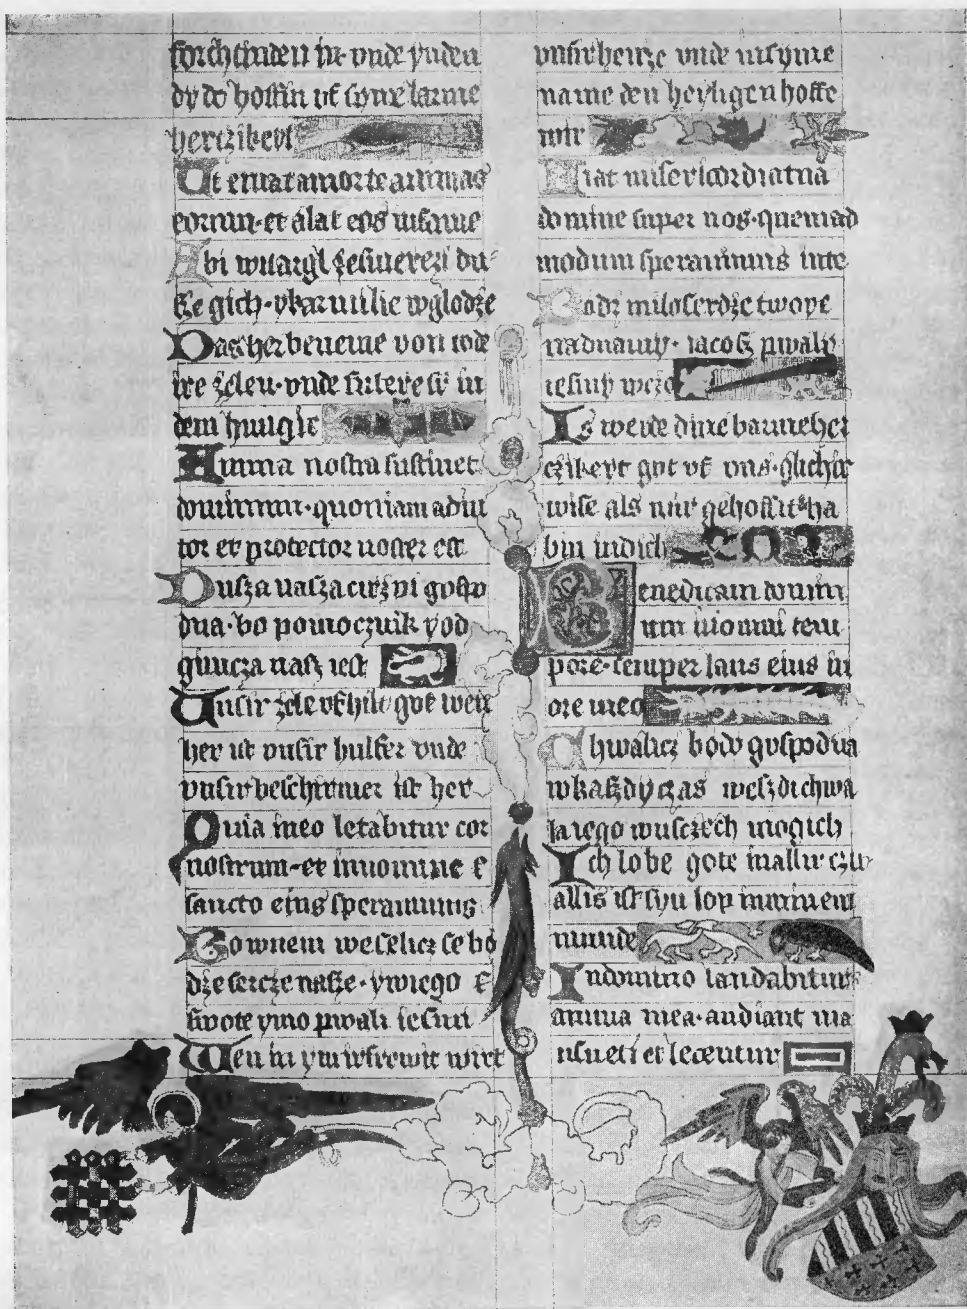 forchtinden in· vnde ynden
dy do hoffin vf syne barme
herczikeyt
Ut eruat a morte animas
eorum· et alat eos in fame
Abi wiargl ge smerczi du
sze gich· ykarmilie wglodze
Das her beneme von tode
ire zelen· vnde futere si in
dem hungir
Anima nostra sustinet
dominum· quoniam adiu
tor et protector noster est
Dusza nasza cirzpi gospo
dna· bo pomocznik y ob
gimcza nasz iest
Unsir zele vf hilt got wen
her ist vnsir hulfer vnde
vnsir beschirmer ist her
Quia in eo letabitur cor
nostrum· et in nomine
sancto eius sperauimus
Bo w nem weselicz se bo
dze sercze nasze· y w iego
swote ymo pwali iesmi
Wen in ym irfrewit wirt
vnsir hercze vnde in syme
name den heyligen hoffe
wir
Fiat misericordia tua
domine super nos· quemad
modum sperauimus in te
Bodz miloserdze twoye
nad nami· iacosz pwaly
iesmy w czo
Is werde dine barmeher
czikeyt got vf vns· glicher
wise als wir gehoffit ha
bin in dich
Benedicam domin
um in omni tem
pore· semper laus eius in
ore meo
Chwalicz bodo gospodna
w kaszdy czas weszdi chwa
la iego w usczech mogich
Ich lobe gote in allir czit
allis ist syn lop in minem
munde
In domino laudabitur
anima mea· audiant ma
nsueti et letentur